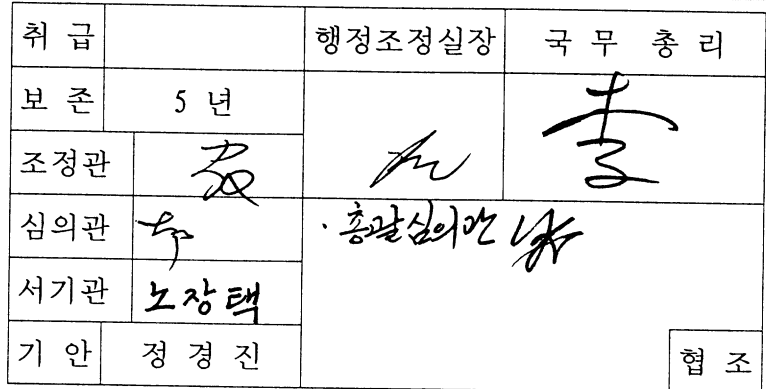 취 급 행정조정실장 국 무 총 리
보 존 5 년 李
조정관
심의관 · 총괄심의관
서기관 노장택
기 안 정 경 진 협 조